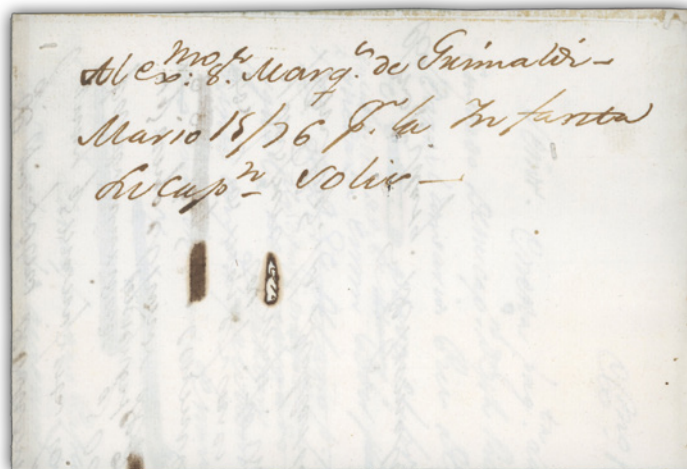 Al Ex.mo S.r Marq.s de Grimaldi
Marzo 15/76 P.r la Infanta
Su Cap.n Solis